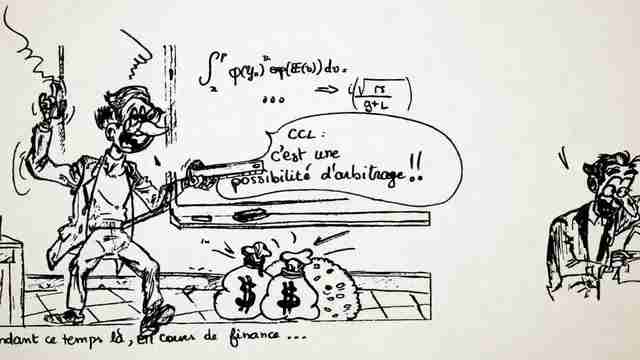 CCL :
c'est une
possibilité d'arbitrage !!
$ $
ndant ce temps là, en cours de finance ...